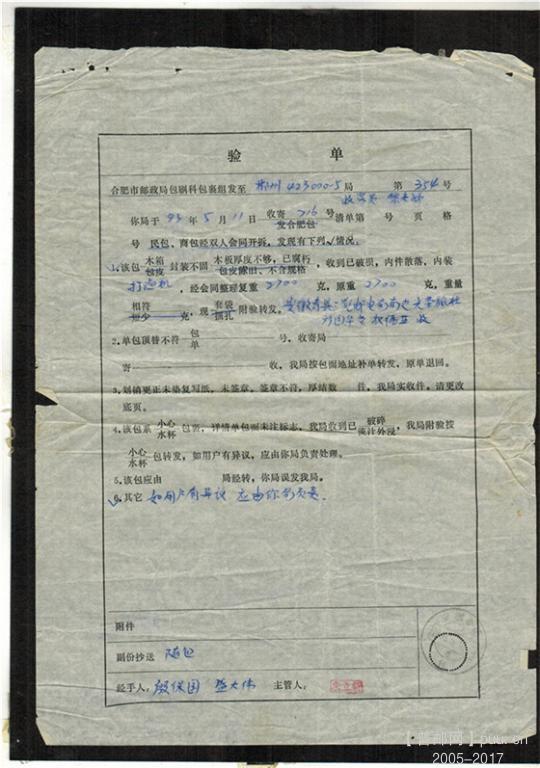 验 单
合肥市邮政局包刷科包裹组发至 郴州 423000-5 局 第 354 号
你局于 93 年 5 月 11 日 收寄 716 号 清单第 号 页 格
发合肥包
号 民包、商包经双人会同开拆，发现有下列√情况。
1.该包 木箱 包皮 封装不固 木板厚度不够，已腐朽 包皮露旧、不合规格 ，收到已破损，内件散落，内装
打 机，经会同整理复重 2700 克，原重 2700 克，重量
相符 短少 克，现 套袋 捆扎 附验转发。
2.单包顶替不符 包 单 号，收寄局
寄 收，我局按包面地址补单转发，原单退回。
3.划销更正未垫复写纸，未签章，签章不符，厚结数 件，我局实收件，请更改
底页。
4.该包系 小心 水杯 包裹，详情单包面未注标志，我局收到已 破碎 流汁外浸 ，我局附验按
小心 水杯 包转发，如用户有异议，应由你局负责处理。
5.该包应由 局经转，你局误发我局。
6.其它 如用户有异议 应由你局负责.
附件
副份抄送 随包
经手人: 殷保国 大伟 主管人:
puu.cn
2005-2017